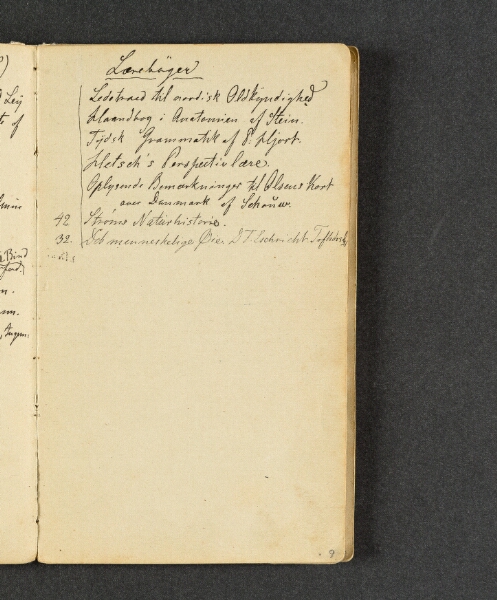 Lærebøger
Ledetraad til nordisk Oldkyndighed
Haandbog i Anatomien af Stein.
Tydsk Grammatik af P. Hjort.
Hetsch's Perspectivlære.
Oplysende Bemærkninger til Olsens Kort
over Danmark af Schouw.
42 Strøms Naturhistorie.
32. Det menneskelige Øie D.F. Eschricht.
9